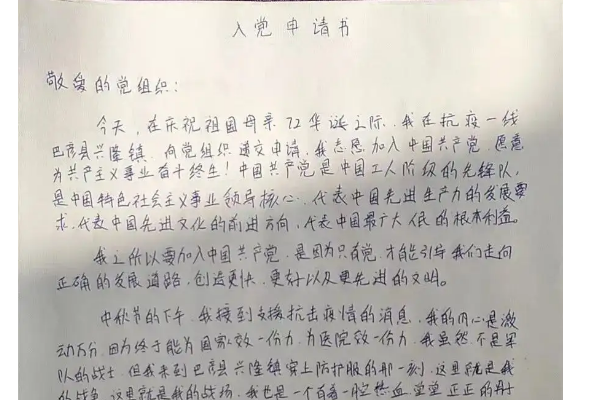 入党申请书
敬爱的党组织：
今天，在庆祝祖国母亲72华诞之际，我在抗疫一线
巴彦县兴隆镇，向党组织递交申请，我志愿加入中国共产党，愿意
为共产主义事业奋斗终生！中国共产党是中国工人阶级的先锋队，
是中国特色社会主义事业领导核心，代表中国先进生产力的发展要
求，代表中国先进文化的前进方向，代表中国最广大人民的根本利益。
我之所以要加入中国共产党，是因为只有党，才能引导我们走向
正确的发展道路，创造更快、更好以及更先进的文明。
中秋节的下午，我接到支援抗击疫情的消息，我的内心是激
动万分，因为终于能为国家效一份力，为医院效一份力，我虽然不是军
队的战士，但我来到巴彦县兴隆镇穿上防护服的那一刻，这里就是我
的战争，这里就是我的战场，我也是一个有着一腔热血，堂堂正正的